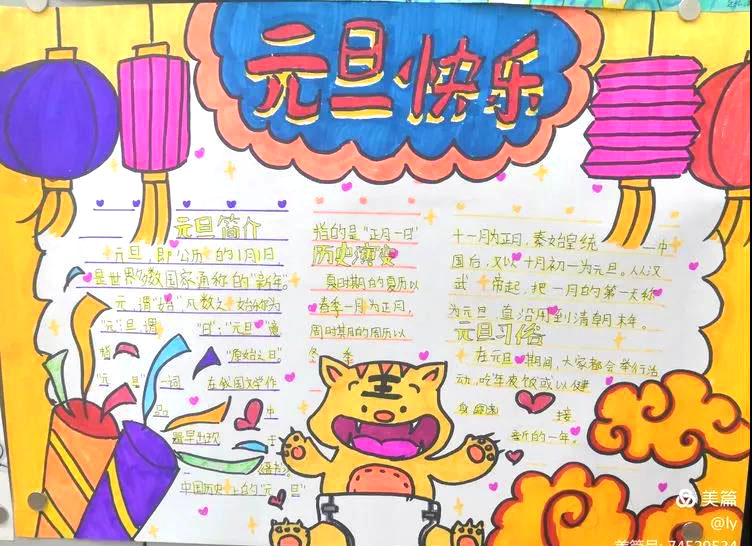 元旦快乐
元旦简介
元旦，即公历的1月1日，
是世界多数国家通称的"新年"。
元，谓"始"，凡数之始称为
"元"；旦，谓"日"；"元旦"意
"原始之日"
"元旦"一词
在我国文学作
品中
最早出现于
《晋书》。
中国历史上的"元旦"
指的是"正月一日"
历史演变
夏时期的夏历以
春季一月为正月，
周时期的周历以
冬季
十一月为正月，秦始皇统一中
国后，又以十月初一为元旦。从汉
武帝起，把一月的第一天称
为元旦，直沿用到清朝末年。
元旦习俗
在元旦期间，大家都会举行活
动，吃年夜饭或以健
身
迎接
新的一年。
美篇
@ly
美篇号: 74529534